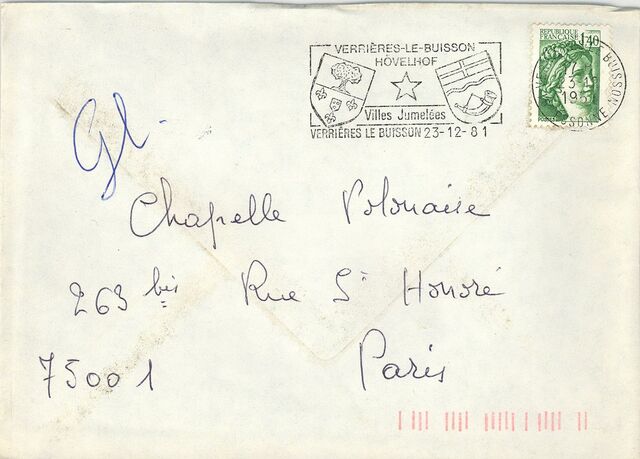 VERRIÈRES-LE-BUISSON
HÖVELHOF
Villes Jumelées
VERRIÈRES LE BUISSON 23-12-81
REPUBLIQUE
FRANÇAISE 1,40
BUISSON
Gl.
Chapelle Polonaise
263 bis Rue St Honoré
75001 Paris